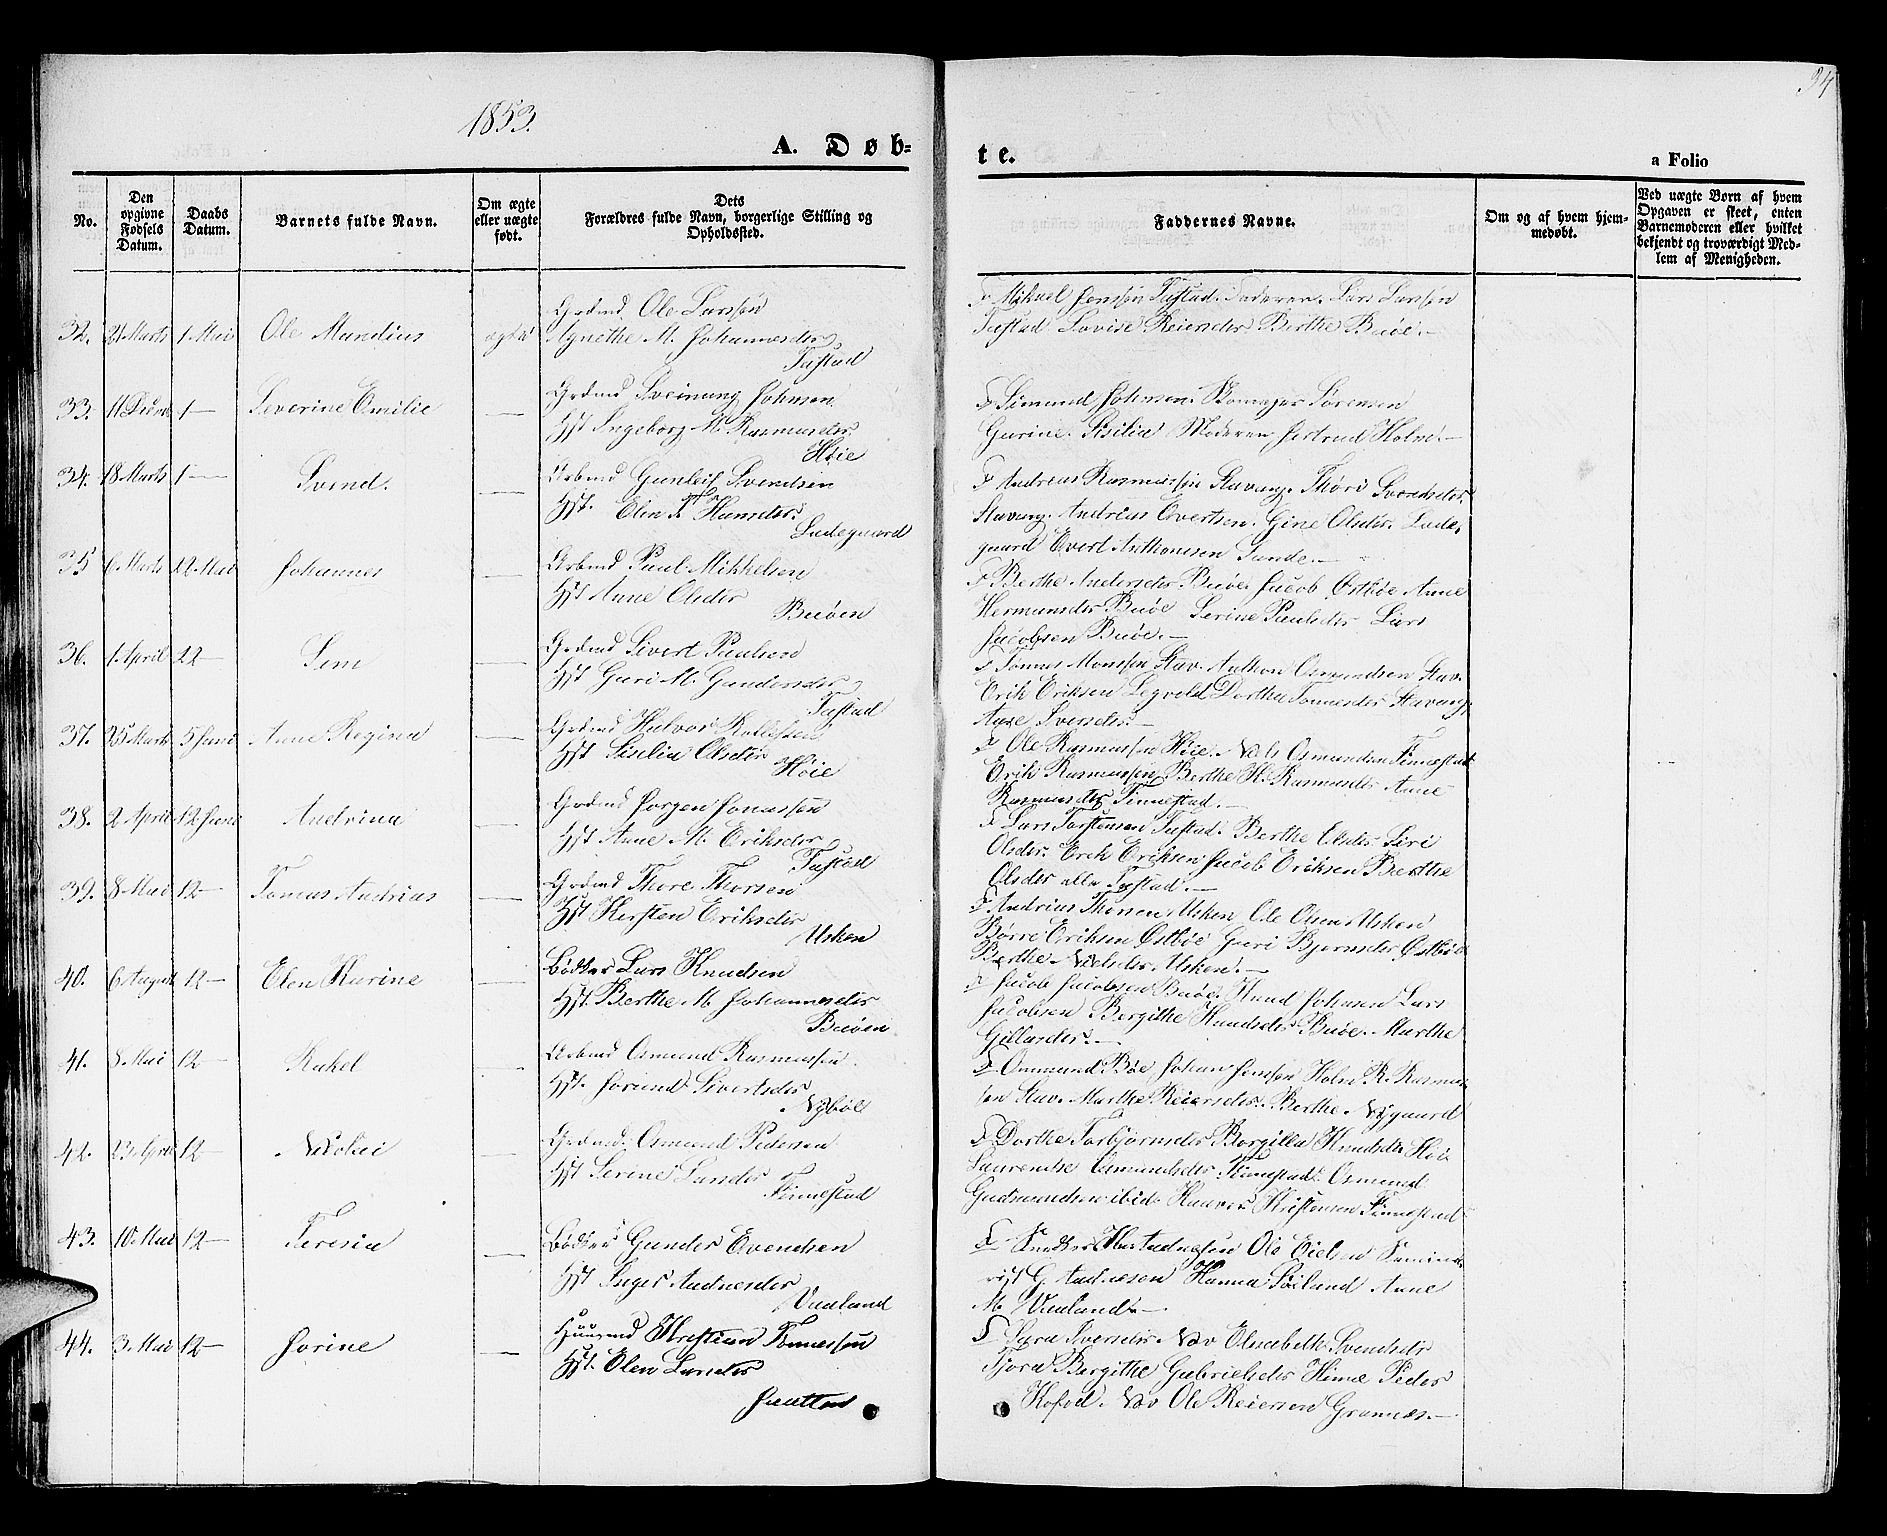 1853.
34
A. Døb-
te.
a Folio
No.
Den opgivne Fødsels Datum.
Daabs Datum.
Barnets fulde Navn.
Om ægte eller uægte født.
Dets Forældres fulde Navn, borgerlige Stilling og Opholdssted.
Faddernes Navne.
Om og af hvem hjemmedøbt.
Ved uægte Børn af hvem Opgaven er skeet, enten Barnemoderen eller hvilket bekjendt og troværdigt Medlem af Menigheden.
32. 21 Marts 1 Mai Ole Mandius ægte
Grdmd Ole Larssøn
Agnethe M. Johannesdtr
Tastad
F Mikael Jenssøn Tastad. Faderen. Lars Larssøn
Tastad Lovise Reiersdtr Berthe Buøe.—
33. 11 1— Severine Emilie —
Grdmd Sveinung Johnsen
Hst Ingeborg M. Rasmusdtr
Høie
F Simund Johnsen. Sørensen
Gurine. Sisilia Moderen Jertrud Holm.—
34. 18 Marts 1— Svend. —
Arbmd Gunleif Svendsen
Hst. Elen T. Hansdtr.
Ladegaard
F Andreas Rasmussøn Stavang. Thøri Svendsdtr.
Stavang. Andreas Evertsen. Gine Olsdtr. Lade-
gaard Evert Anthonisen Sande.—
35 6 Marts 22 Mai Johannes —
Arbmd Paul Mikkelsen
Hst Anne Olsdtr
Buøen
F Berthe Andersdtr Buøe Jacob Østbøe Anne
Hermansdtr Buøe Serine Paulsdtr Lars
Jacobsen Buøe.—
36. 1 April 22— Sem —
Grdmd Sivert Paulsen
Hst Guri M. Gundersdtr
Tastad
F Tomas Monssøn Stav. Anthon Osmundsen Stav.
Erik Eriksen Dorthea Tonnesdtr Stavang.
Ane Iversdtr.—
37. 25 Marts 5 Juni Anne Regina —
Grdmd Halvor
Hst Sisilia Olsdtr
Høie
F Ole Rasmussøn Høie. Nils Osmundsen Finnestad
Erik Rasmussøn Berthe K. Rasmusdtr Anne
Rasmusdtr Finnestad.—
38. 2 April 12 Juni Andrina —
Grdmd Jørgen Jonassøn
Hst Anne M. Eriksdtr
Tastad
F Lars Torstensen Tastad. Berthe Elsdtr Siri
Olsdtr. Erik Eriksen Jacob Eriksen Berthe
Olsdtr alle Tastad.—
39. 8 Mai 12— Tomas Andrias —
Grdmd Thore Thorsen
Hst Kirsten Eriksdtr
Usken
F Andrias Thorsen Usken Ole Olsen Usken
Børre Eriksen Østbøe Guri Bjornsdtr Østbøe
Berthe Nielsdtr Usken.—
40. 6 August 12— Elen Karine —
Bødker Lars Knudsen
Hst. Berthe M. Johannesdtr
Buøen
F Jacob Jacobsen Buøe. Knud Johnsen Lars
Jacobsen Bergithe Knudsdtr Buøe. Marthe
41. 8 Mai 12— Rakel —
Arbmd Osmund Rasmussøn
Hst. Jorund Sivertsdtr
Nybøe
F Ommund Bøe Johan Jenssøn Holm R. Rasmus-
søn Stav. Marthe Reiersdtr. Berthe Nygaard
42. 23 April 12— Nicolai —
Grdmd. Osmund Pedersen
Hst Serine Larsdtr
Finnestad
F Dorthe Torbjørnsdtr Borgilla Knudsdtr Høie
Laurentse Osmundsdtr. Finnestad. Osmund
Gudmundsen ibid. Kristensen Finnestad
43. 10. Mai 12— Teresia —
Bødker Gunder Evendsen
Hst Inger Andreasdtr
Vaaland
F Ole Semina-
rist G. Andresen Hanna Soiland Anne
M. Vaaland.—
44. 3 Mai 12— Jorine —
Huusmd Kristian Tonnessøn
Hst. Elen Larsdtr
Jaatten
F Sara Iversdtr. Elisabeth Svendsdtr
Tjora Bergithe Gabrielsdtr Peder
Hofod. Ole Reiersen Grannes.—